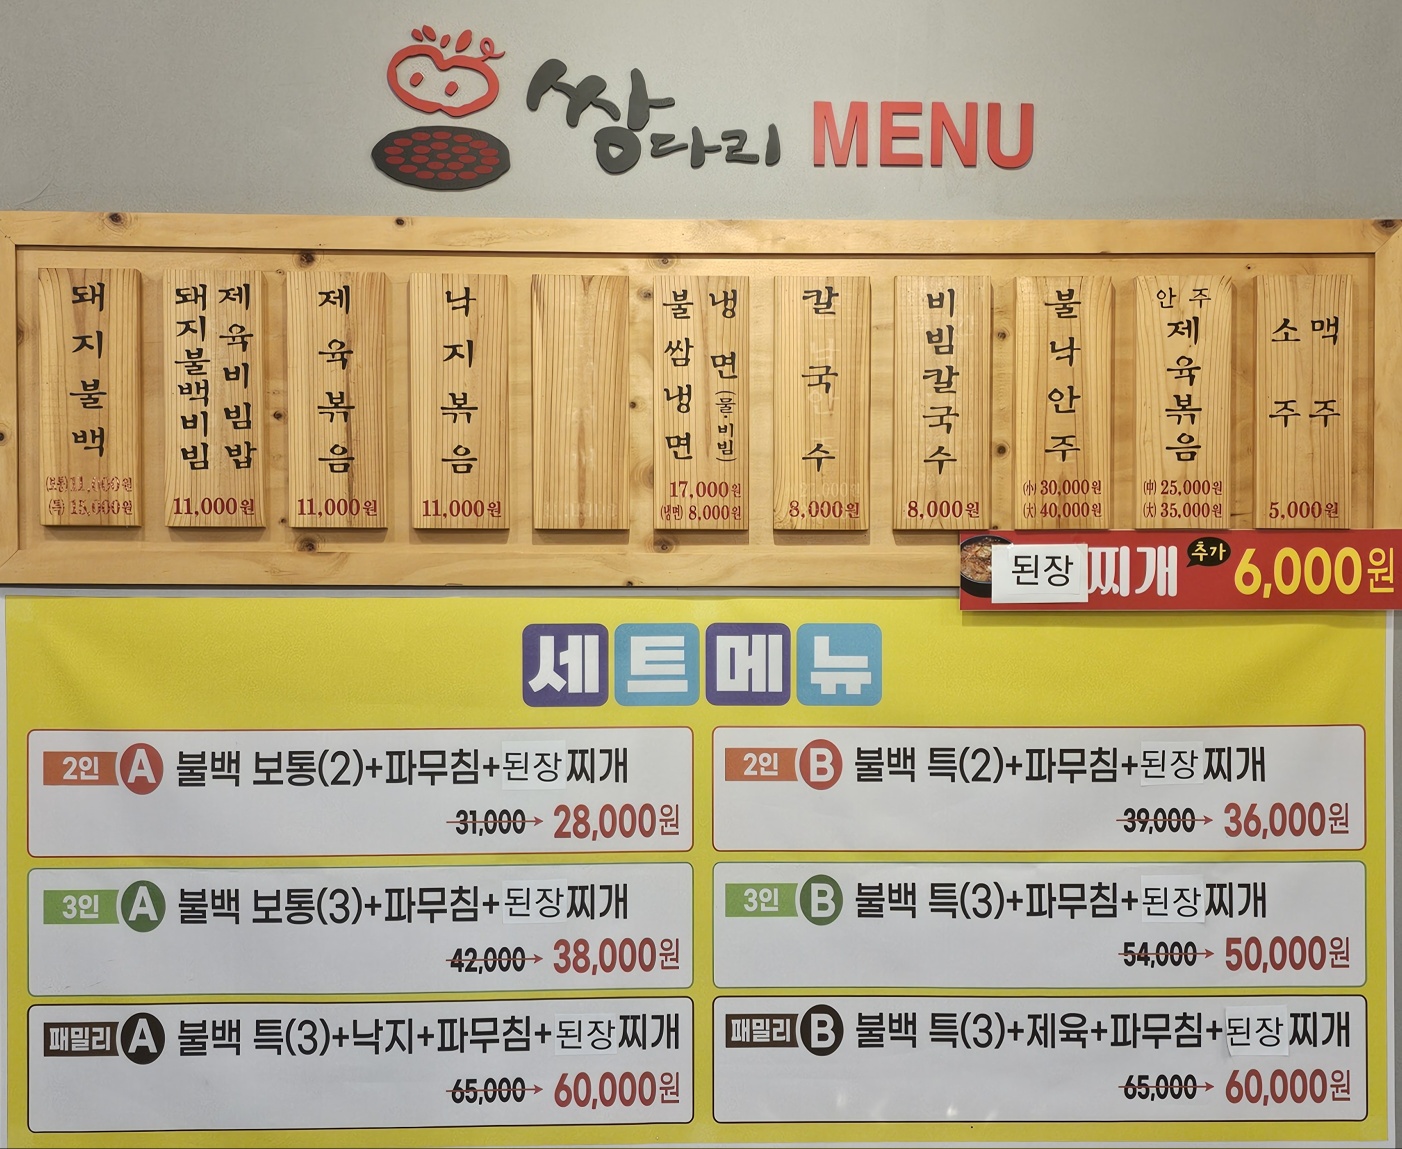 쌈다리 MENU
돼지불백
(보통)11,000원
(특) 15,000원
제육비빔밥
돼지불백비빔
11,000원
제육볶음
11,000원
낙지볶음
11,000원
냉면(물·비빔)
불쌈냉면
17,000원
(냉면) 8,000원
칼국수
8,000원
비빔칼국수
8,000원
불낙안주
(小) 30,000원
(大) 40,000원
안주
제육볶음
(中) 25,000원
(大) 35,000원
맥주
소주
5,000원
된장찌개 추가 6,000원
세트메뉴
2인 A 불백 보통(2)+파무침+된장찌개
31,000 → 28,000원
2인 B 불백 특(2)+파무침+된장찌개
39,000 → 36,000원
3인 A 불백 보통(3)+파무침+된장찌개
42,000 → 38,000원
3인 B 불백 특(3)+파무침+된장찌개
54,000 → 50,000원
패밀리 A 불백 특(3)+낙지+파무침+된장찌개
65,000 → 60,000원
패밀리 B 불백 특(3)+제육+파무침+된장찌개
65,000 → 60,000원